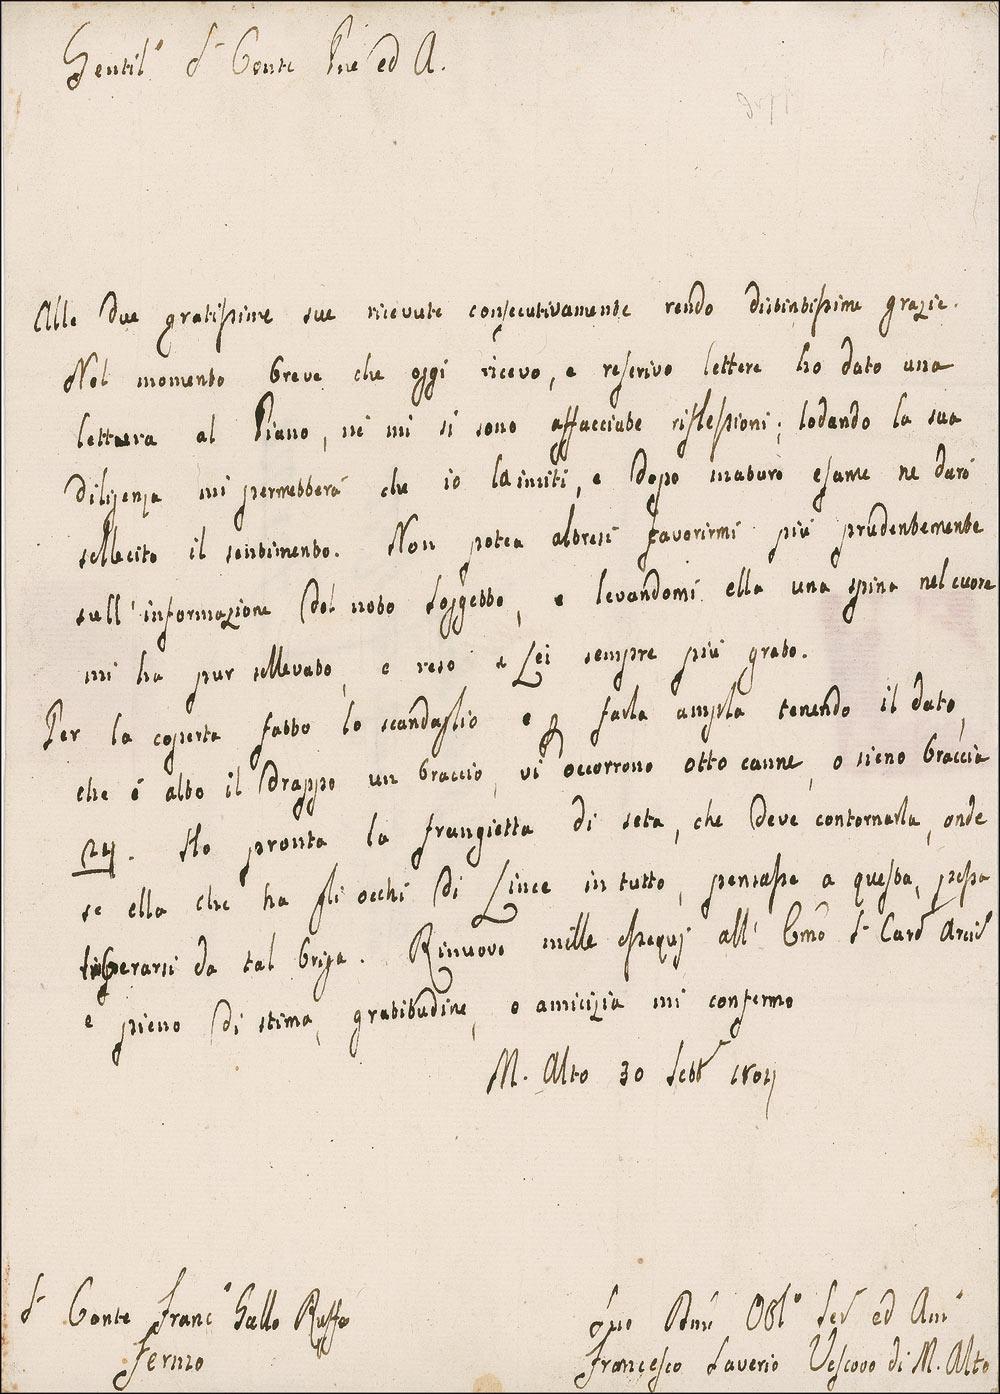 Gentil.o S.r Conte Pne ed A.
Alle due gratissime sue ricevute consecutivamente rendo distintissime grazie.
Nel momento breve che oggi ricevo, e rescrivo lettere ho dato una
lettura al Piano, nè mi si sono affacciate riflessioni; lodando la sua
diligenza mi permetterà che io la imiti, e dopo maturo esame ne darò
sollecito il sentimento. Non potea altresì favorirmi più prudentemente
sull'informazione del noto Soggetto, e levandomi ella una spina nel cuore
mi ha pur sollevato, e reso a Lei sempre più grato.
Per la coperta fatto lo scandaglio e p farla ampla tenendo il dato,
che è alto il Drappo un braccio, vi occorrono otto canne, o sieno braccia
24. Ho pronta la frangietta di seta, che deve contornarla, onde
se ella che ha gli occhi di Lince in tutto, pensasse a questa, possa
liberarsi da tal briga. Rinuovo mille ossequj all' Emo S.r Card. Arciv.
e pieno di stima, gratitudine, e amicizia mi confermo
M. Alto 30 Sett.e 1804
S.r Conte Franc.o Gallo Ruffo
Fermo
Suo Dmo Obl.o Ser ed Am.o
Francesco Saverio Vescovo di M. Alto